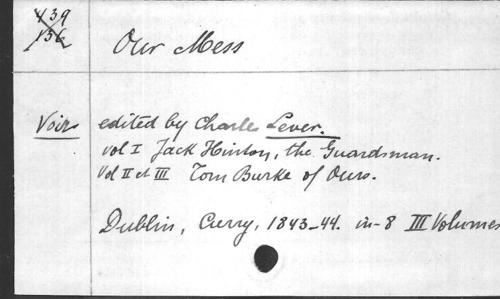 439
136
Our Mess
Voir edited by Charles Lever.
vol I Jack Hinton, the Guardsman.
Vol II et III Tom Burke of Ours.
Dublin, Curry, 1843-44. in-8 III Volumes